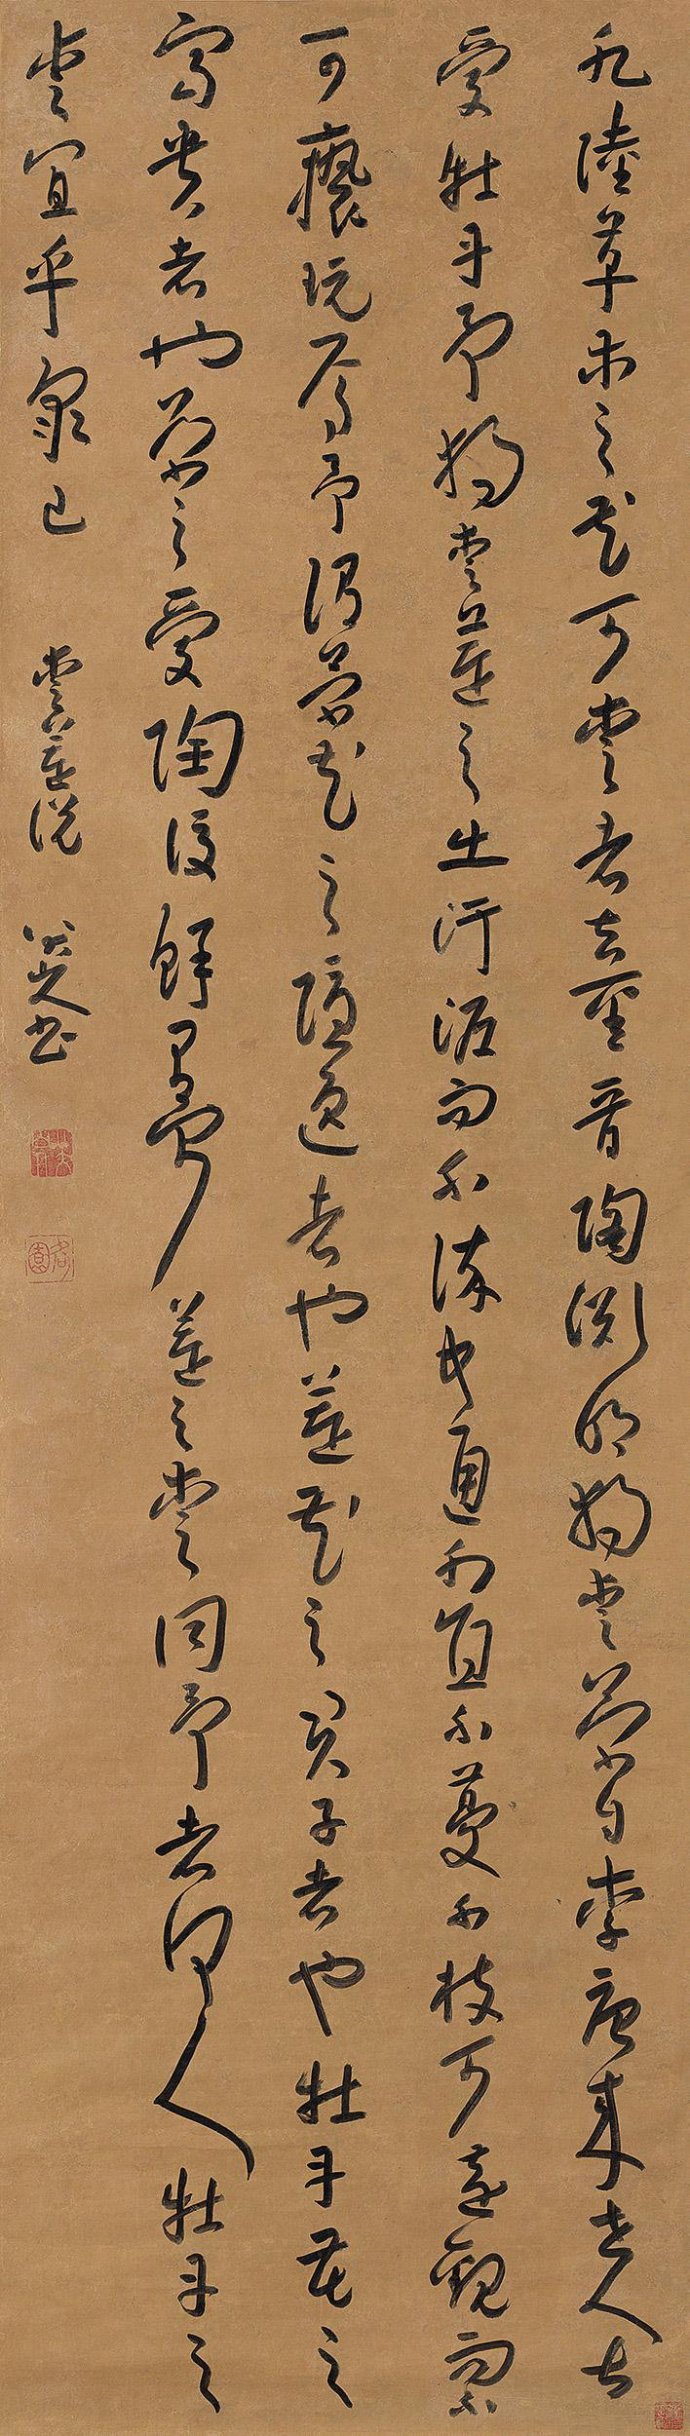 水陸草木之花可愛者甚蕃晉陶淵明獨愛菊自李唐來世人甚
愛牡丹予獨愛蓮之出汙泥而不染中通外直不蔓不枝可遠觀而不
可褻玩焉予謂菊花之隱逸者也蓮花之君子者也牡丹花之
富貴者也菊之愛陶後鮮有聞蓮之愛同予者何人牡丹之
愛宜乎眾已 愛蓮說 八大山人書